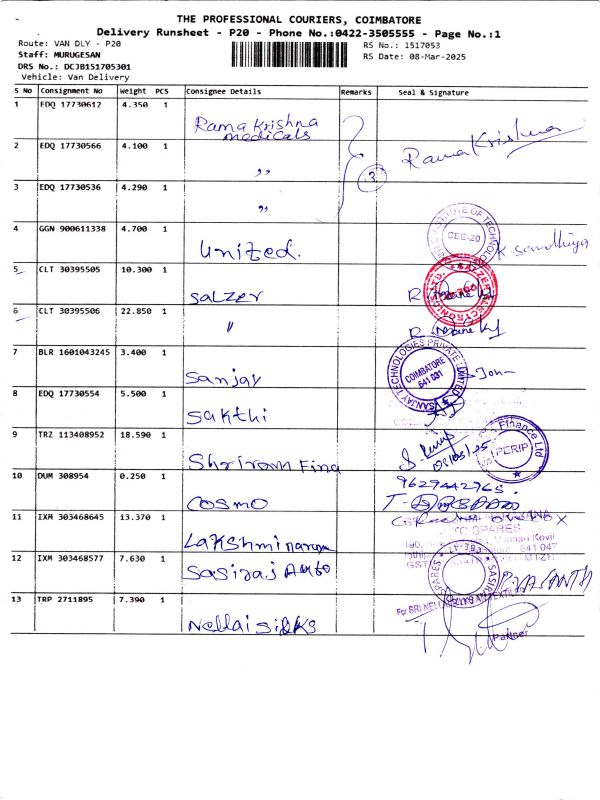 THE PROFESSIONAL COURIERS, COIMBATORE
Delivery Runsheet - P20 - Phone No.:0422-3505555 - Page No.:1
Route: VAN DLY - P20
RS No.: 1517053
Staff: MURUGESAN
RS Date: 08-Mar-2025
DRS No.: DCJB151705301
Vehicle: Van Delivery
S No Consignment No Weight PCS Consignee Details Remarks Seal & Signature
1 EDQ 17730612 4.350 1
Rama Krishna
medicals
2 EDQ 17730566 4.100 1
,,
3
Rama Krishna
3 EDQ 17730536 4.290 1
,,
4 GGN 900611338 4.700 1
United.
INSTITUTE OF TECHNOLOGY
CBE-20
K. Sandhiya
5 CLT 30395505 10.300 1
Salzer
SALZER ELECTRONICS LTD.
6 CLT 30395506 22.850 1
"
7 BLR 1601043245 3.400 1
Sanjay
SANJAY TECHNOLOGIES PRIVATE LIMITED
COIMBATORE
641 031
8 EDQ 17730554 5.500 1
Sakthi
9 TRZ 113408952 18.590 1
Shriram Fina
08/03/25
Finance Ltd
PERIP
10 DUM 308954 0.250 1
Cosmo
9629442765.
11 IXM 303468645 13.370 1
Lakshminaraya
SPARES
Kovil
641 047
GST
12 IXM 303468577 7.630 1
Sasiraj Auto
SPARES
CBE
SASIRAJ
VASANTH
13 TRP 2711895 7.390 1
Nellai silks
For SRI NELLAI SILKS
Partner